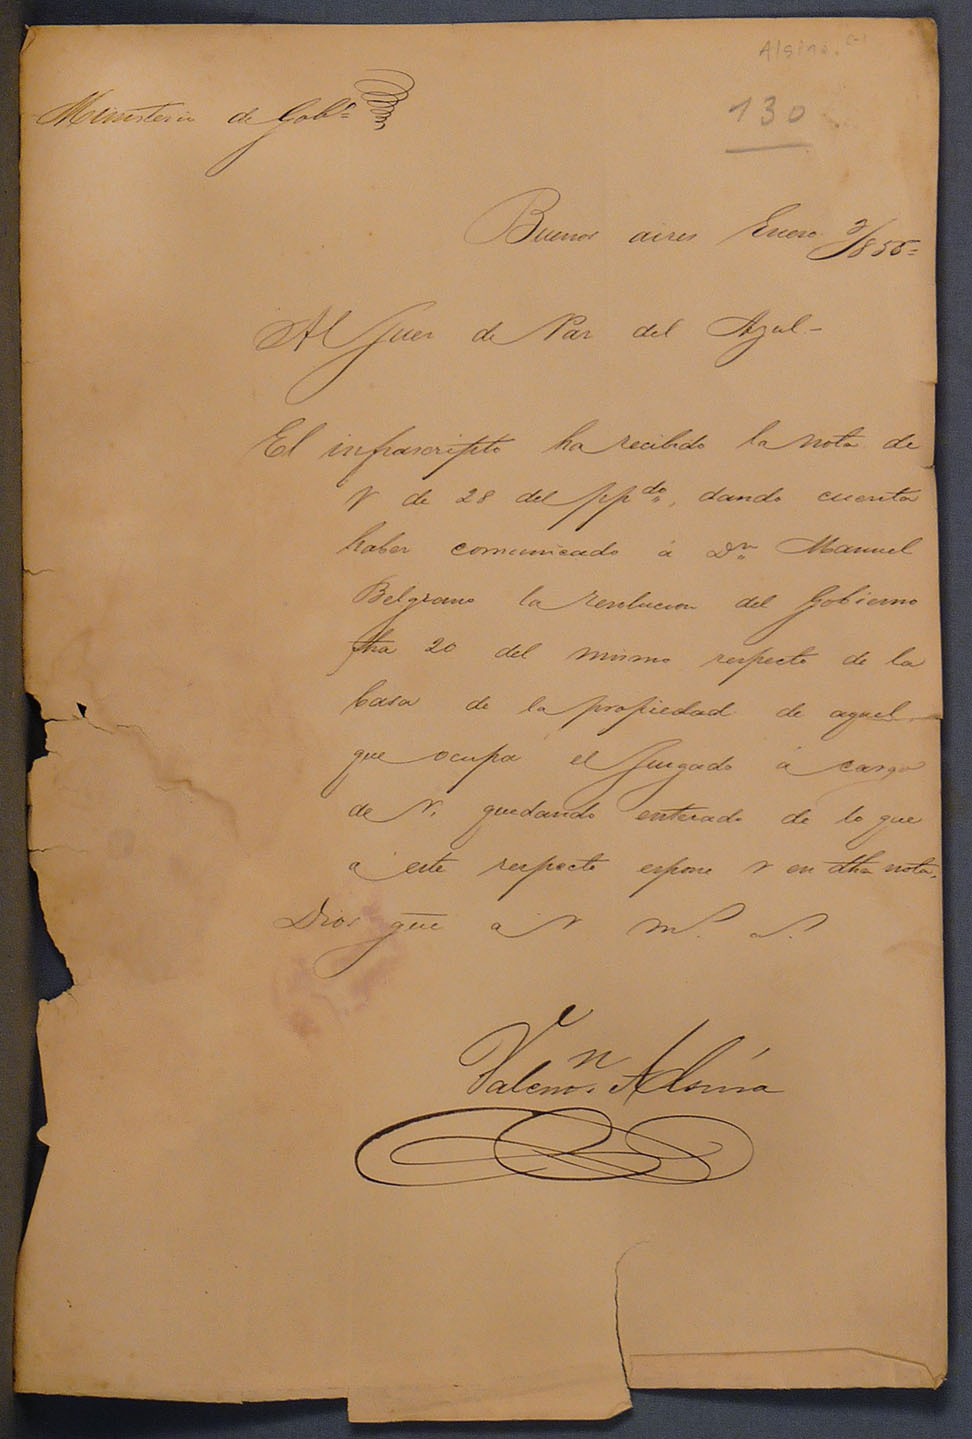 Alsina.
130
Ministerio de Gobº
Buenos aires Enero /855=
Al Juez de Paz del Azul-
El infrascripto ha recibido la nota de
V de 28 del ppdo, dando cuenta
haber comunicado á Dn Manuel
Belgrano la resolucion del Gobierno
fha 20 del mismo respecto de la
casa de la propiedad de aquel
que ocupa el Juzgado á cargo
de V. quedando enterado de lo que
a este respecto espone V en dha nota.
Dios gue a V m. a.
Valenn. Alsina